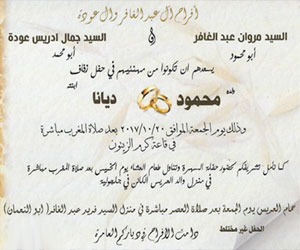 أفراح آل عبد الغافر وآل عودة
السيد مروان عبد الغافر
أبو محمود
و
السيد جمال ادريس عودة
أبو محمد
يسعدهم ان تكونوا من مهنئينهم في حفل زفاف
ولده
محمود
ابنته
ديانا
وذلك يوم الجمعة الموافق ٢٠١٧/١٠/٢٠ بعد صلاة المغرب مباشرة
في قاعة كروم الزيتون
كما نأمل تشريفكم بحضور حفلة السهرة وتناول طعام العشاء يوم الخميس بعد صلاة المغرب مباشرة
في منزل والد العريس الكائن في جلجولية
حمام العريس يوم الجمعة بعد صلاة العصر مباشرة في منزل السيد فريد عبد الغافر (ابو النعمان)
الحفل غير مختلط
دامت الأفراح في دياركم العامرة